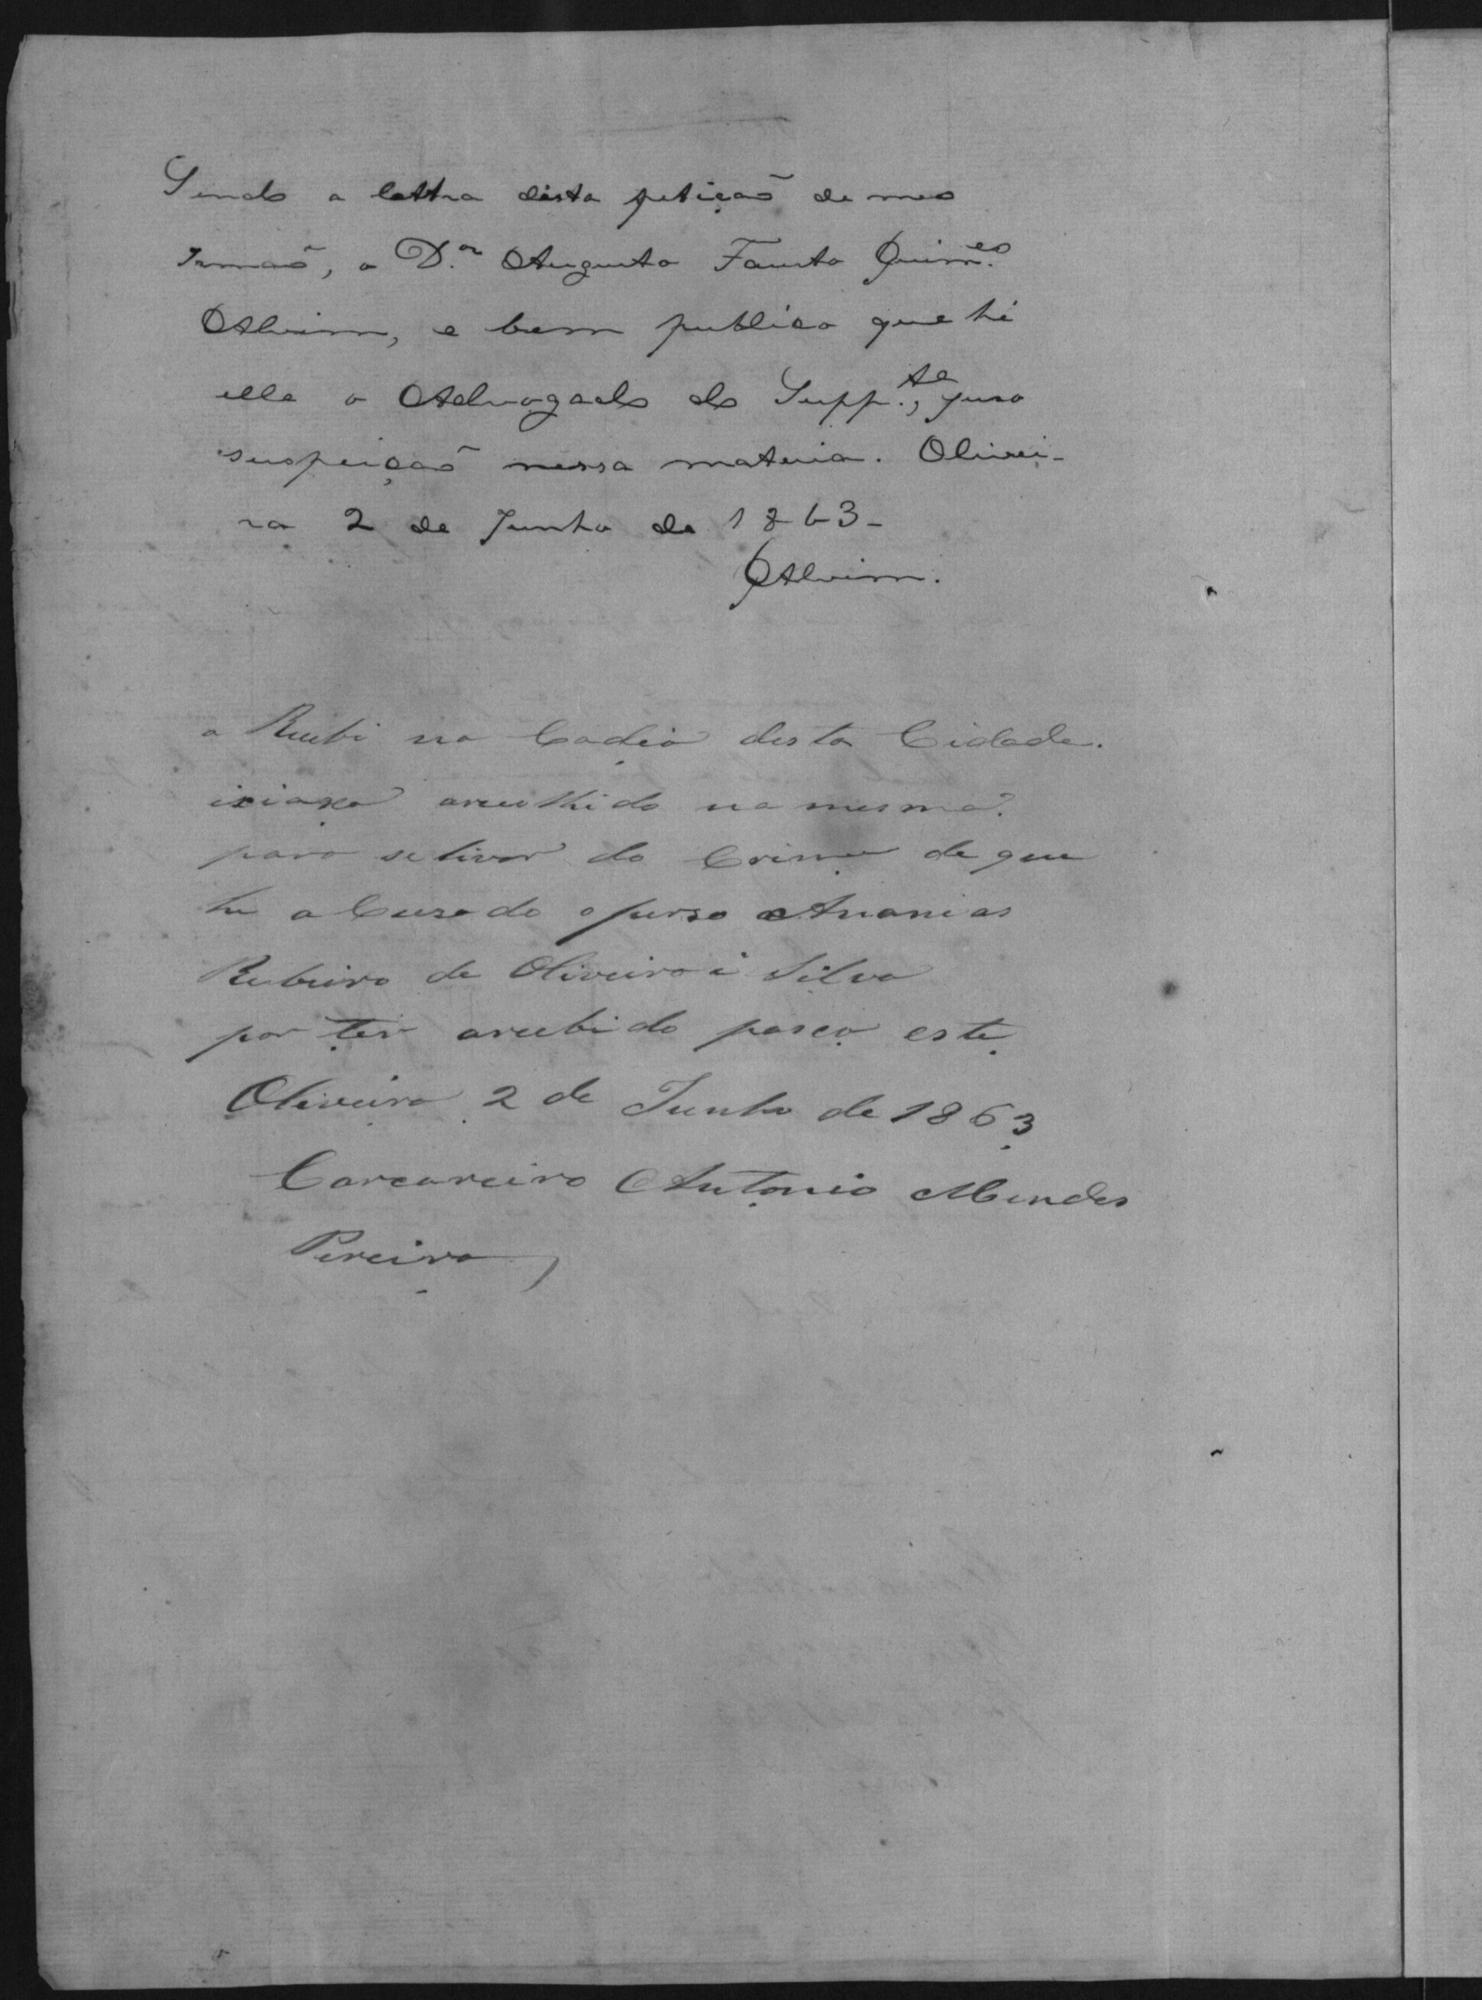 Sendo a lettra desta petição de meo
Irmaõ, o D.or Augusto Fausto Guim.es
Alvim, e bem publico que hé
elle o Advogado do Supp.te, juro
suspeiçaõ nessa materia. Olivei-
ra 2 de Junho de 1863-
Alvim.
a Rusebi na Cadeia desta Cidade.
arcolhido na mesma
para se livar do Crime de que
he a Cuzado o purso Ananias
Rebeiro de Oliveira i Silva
por ter arcebido paso este
Oliveira 2 de Junho de 1863
Carcareiro Antonio Mendes
Pereira